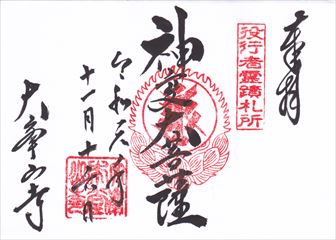 奉拝
役行者霊蹟札所
神変大菩薩
令和元年
十一月十六日
大峯山寺